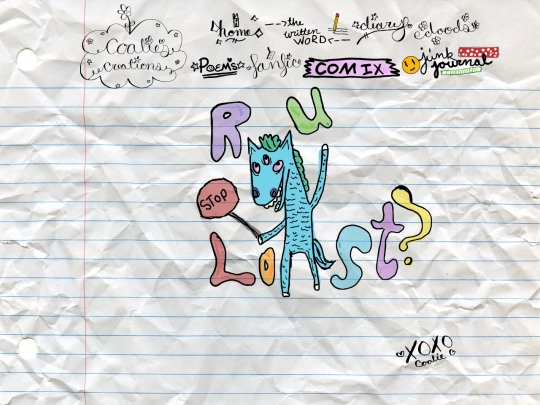 Coalies
Creations
home
--->the
written
WORD<---
diary
doods
POEMS
fanfic
COMIX
junk
journal
R U
STOP
Lost?
XOXO
Coalie